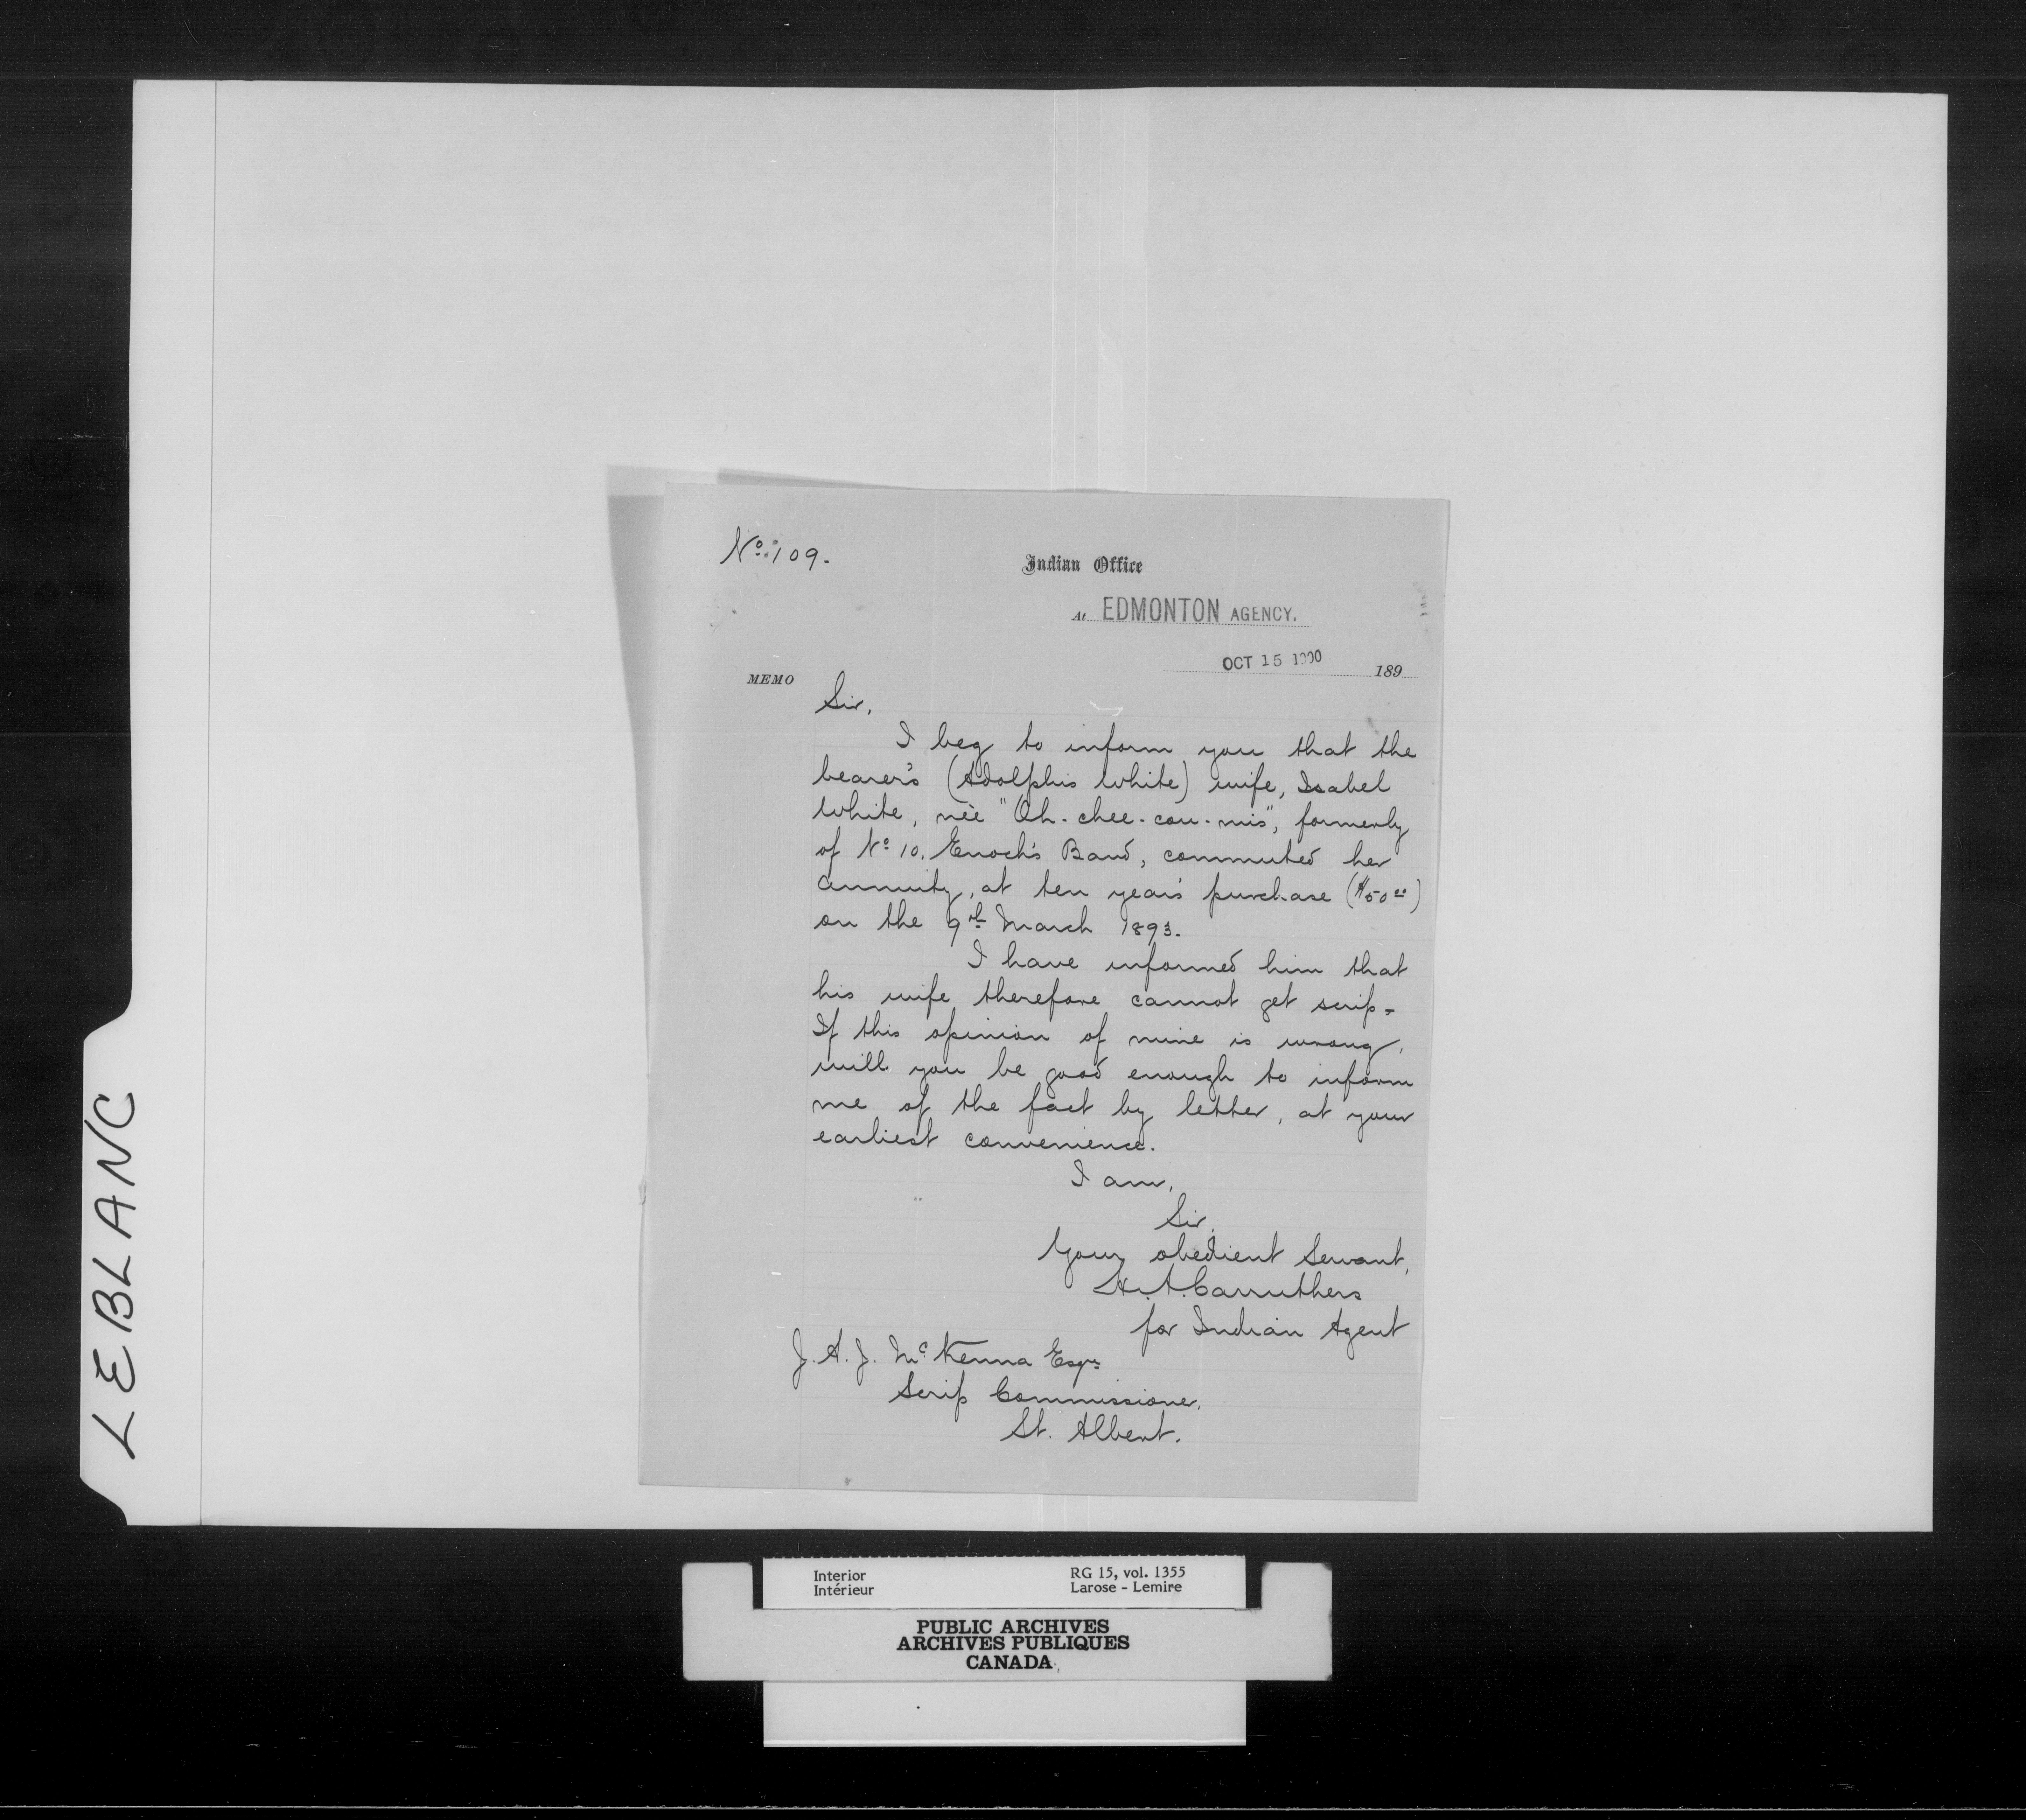 No. 109.
Indian Office
At EDMONTON AGENCY.
OCT 15 1900 189
MEMO
Sir,
I beg to inform you that the
bearer's (Adolphis White) wife, Isabel
White, née "Oh-chee-cou-mis", formerly
of No 10. Enoch's Band, commuted her
annuity, at ten years purchase ($50.00)
on the 9th March 1893.
I have informed him that
his wife therefore cannot get scrip-
If this opinion of mine is wrong,
will you be good enough to inform
me of the fact by letter, at your
earliest convenience.
I am,
Sir,
Your obedient Servant,
H. A. Carruthers
for Indian Agent
J. A. J. McKenna Esqre
Scrip Commissioner,
St. Albert.
LEBLANC
Interior RG 15, vol. 1355
Intérieur Larose - Lemire
PUBLIC ARCHIVES
ARCHIVES PUBLIQUES
CANADA